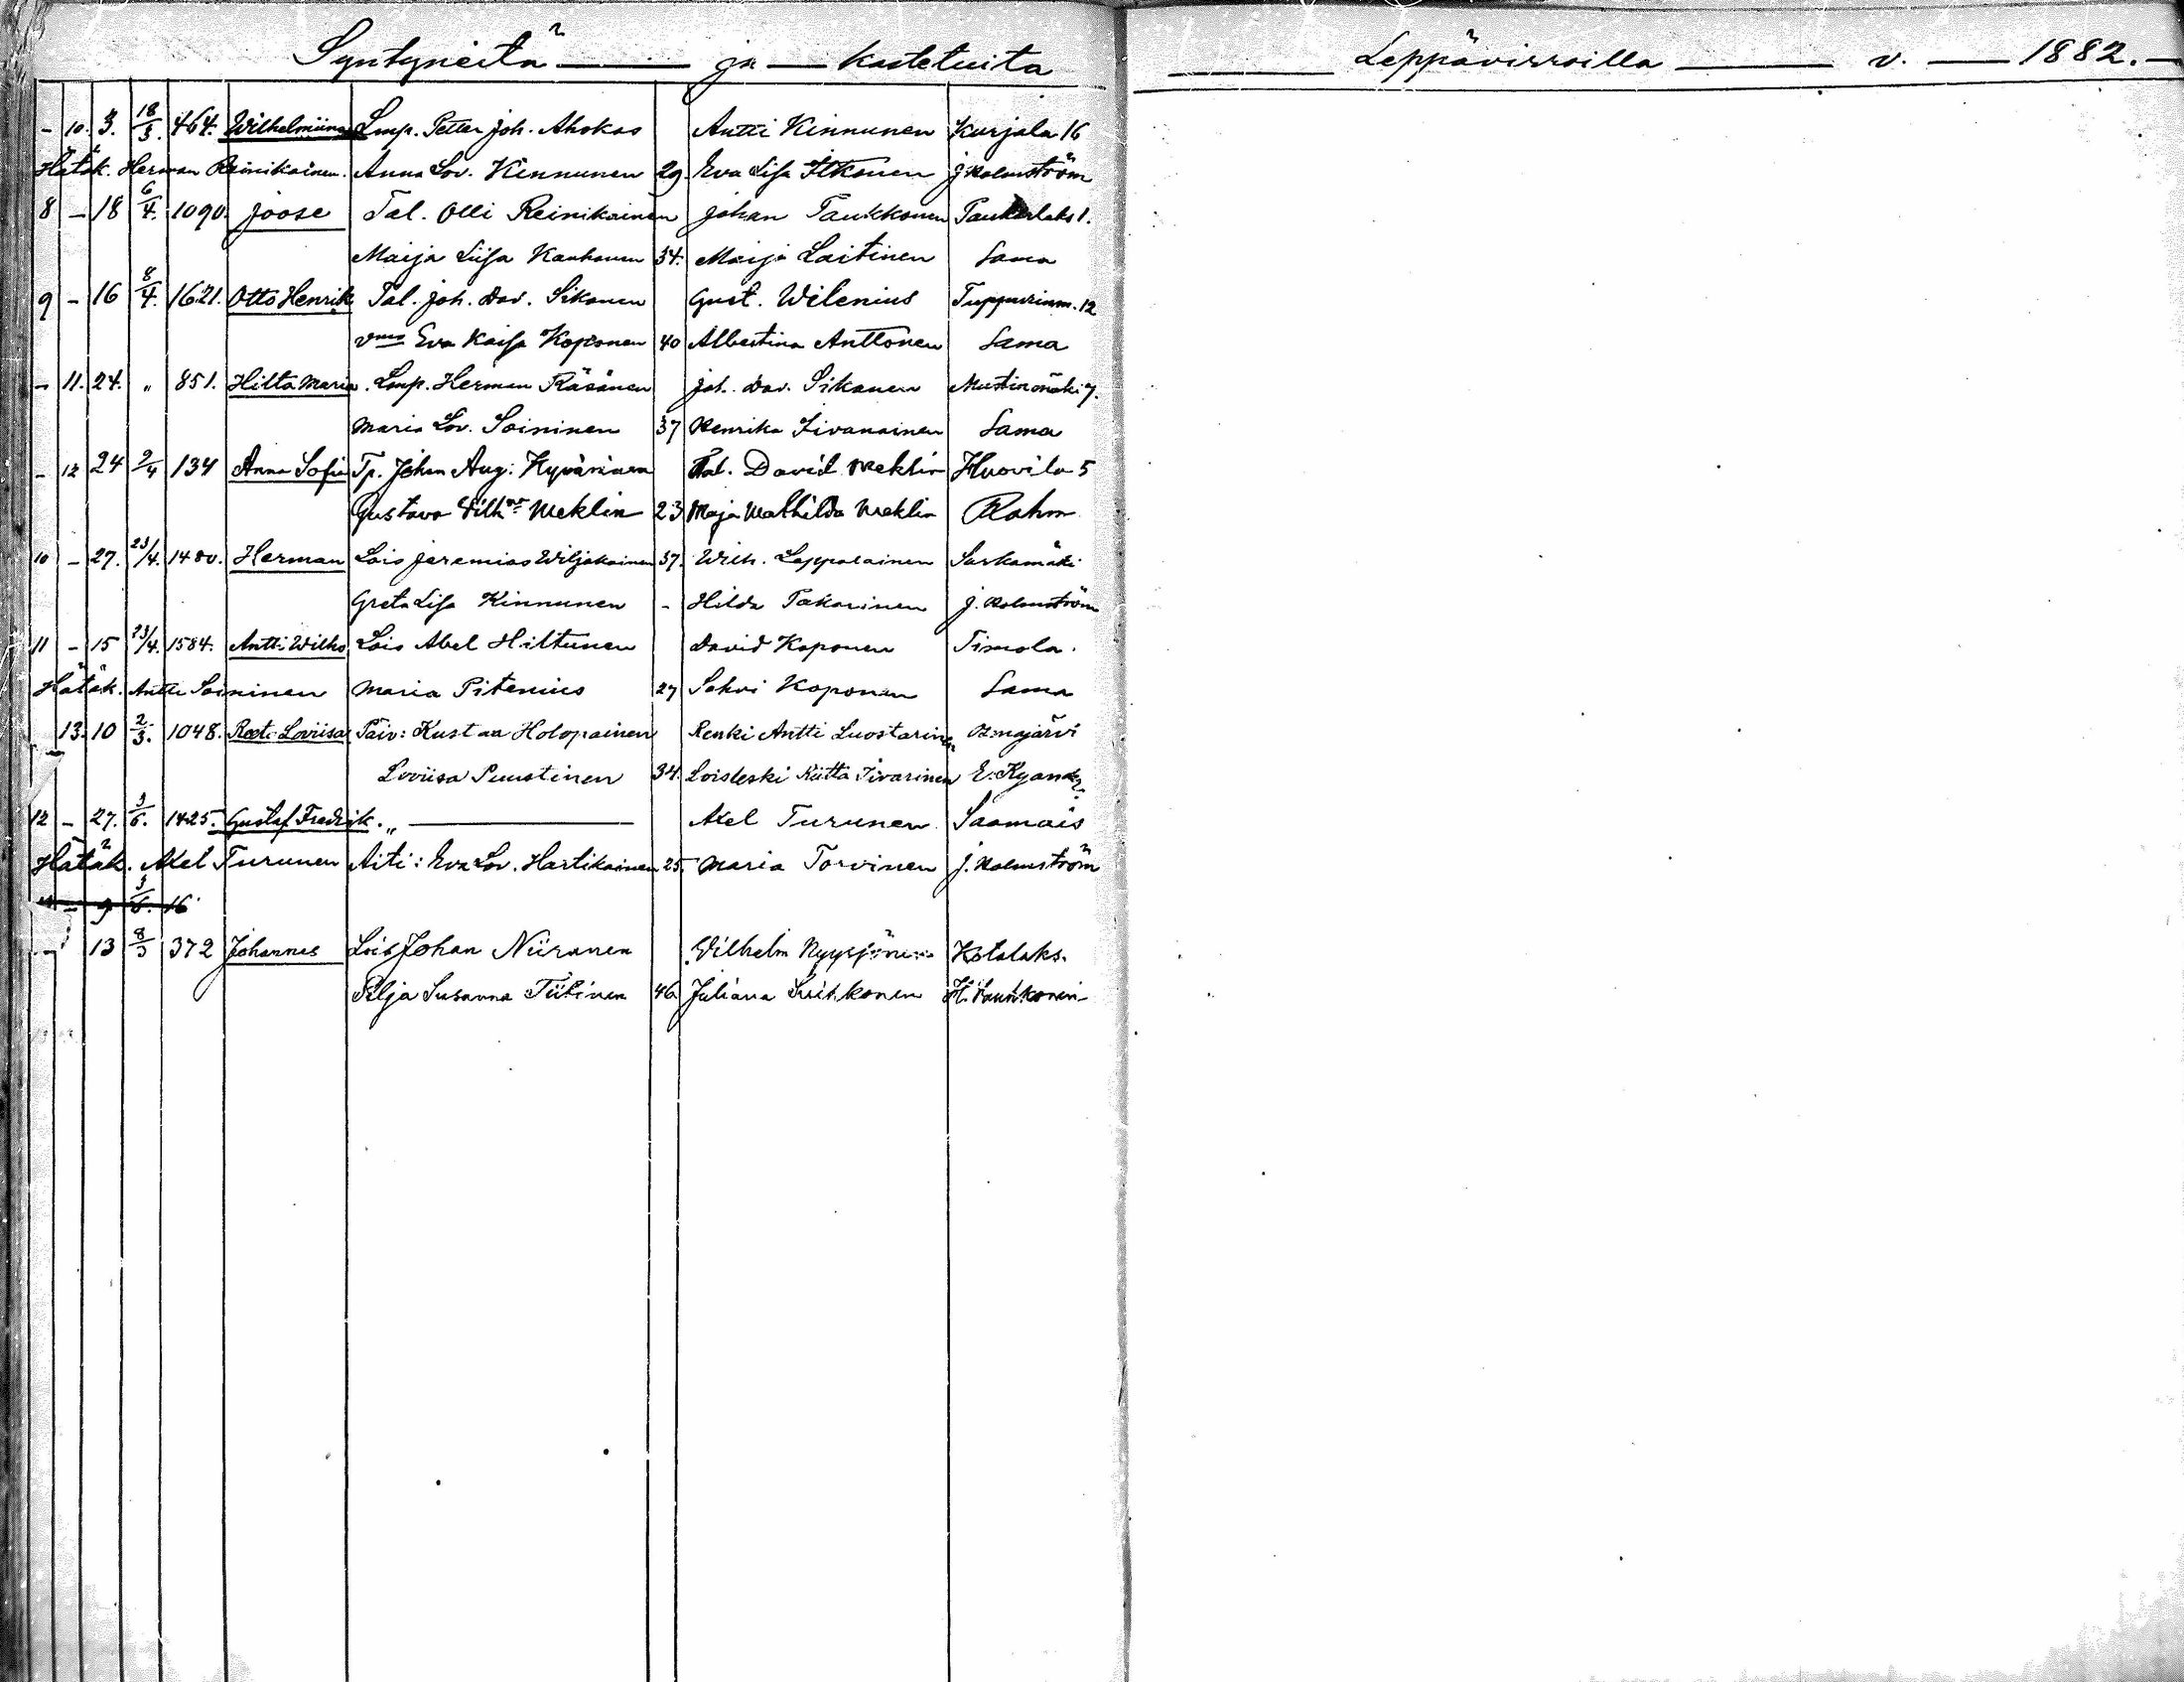 Syntyneitä — ja — kastetuita
Leppävirroilla — v. — 1882. —
- 10. 3. 18/3. 464. Wilhelmiina Lmp. Petter Joh. Ahokas Antti Kinnunen Kurjala 16
Hätäk. Herman Reinikainen. Anna Lov. Kinnunen 29. Eva Lisa Itkonen J. Holmström
8 - 18 6/4. 1090. Joose Tal. Olli Reinikainen Johan Taukkonen 1.
Maija Liisa 34. Maija Laitinen Sama
9 - 16 8/4. 1621. Otto Henrik Tal. Joh. Dav. Sikanen Gust. Wilenius 12
Eva Kaisa Koponen 40 Albertina Anttonen Sama
- 11. 24. " 851. Hilta Maria. Lmp. Herman Räsänen Joh. Dav. Sikanen Mustinmäki 7.
Maria Lov. Soininen 37 Henrika Iivanainen Sama
- 12 24 2/4 134 Anna Sofia Tp. Johan Aug. Hyvärinen Tal. David Meklin Huovila 5
Gustava Vilh:na Meklin 23 Maja Mathilda Meklin Rahm
10 - 27. 23/4. 1480. Herman Lois Jeremias Wiljakainen 37. Wilh. Lappalainen Sarkamäki
Greta Lisa Kinnunen - Hilda Takarinen J. Holmström
11 - 15 23/4. 1584. Antti Wilho Lois Abel Hiltunen David Koponen Timola.
Hätäk. Antti Soininen Maria Pitenius 27 Sohvi Koponen Sama
13. 10 2/3. 1048. Loviisa Päiv: Kustaa Holopainen Renki Antti Luostarinen Osmajärvi
Loviisa Puustinen 34. Loisleski Riitta Iivarinen E. Kyander
12 - 27. 1425. Gustaf Fredrik. „ — Akel Turunen Saamais
Hätäk. Akel Turunen Äiti: Eva Lov. Hartikainen 25. Maria Torvinen J. Holmström
9 16
- 13 8/3 372 Johannes Lois Johan Niiranen Vilhelm Nyyssönen Kotalaks.
Silja Susanna Tiitinen 46. Juliana Suihkonen